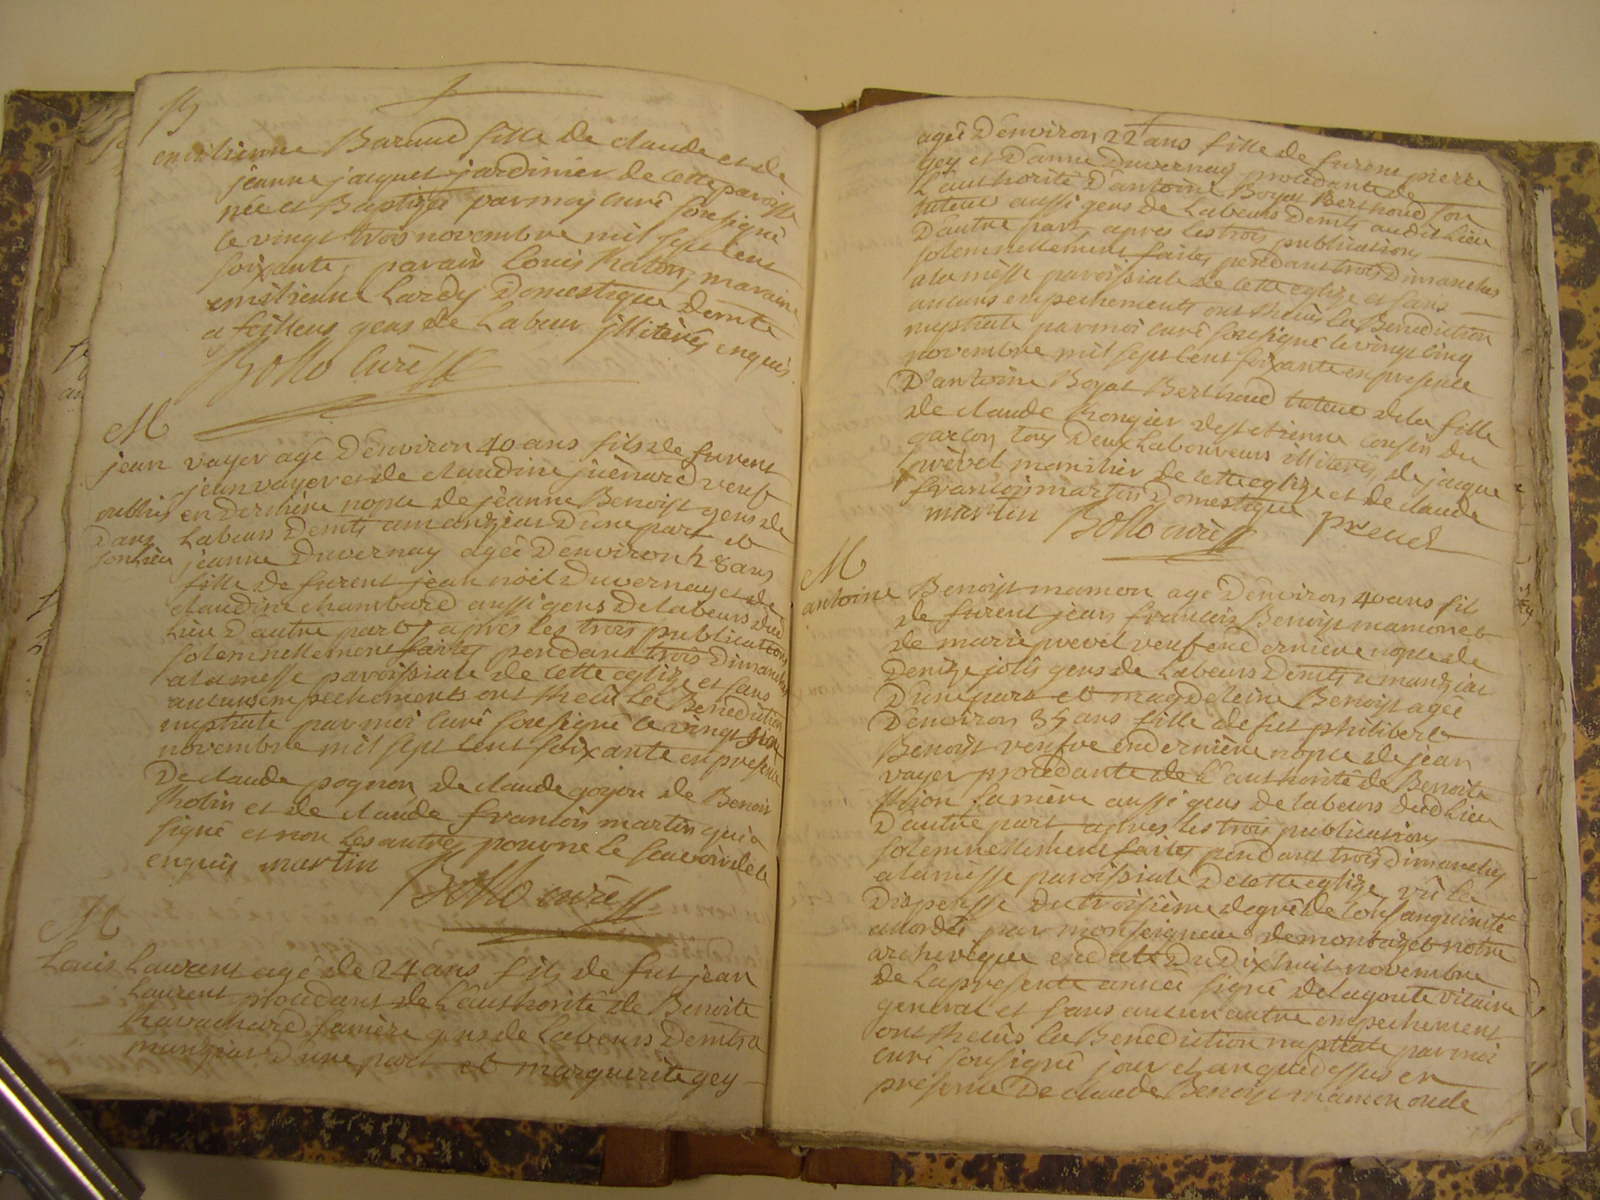 B
emilienne Barnud fille de claude et de
jeanne jacquet jardinier de cette paroisse
née et Baptizé par moy curé sousigné
le vingt trois novembre mil sept cent
soixante, parain Louis Raton, maraine
emilienne Lardy Domestique demte
a feillens gens de Labeur illiterés enquis
Bollo curé
M
jean vayer agé d'environ 40 ans fils de furent
jean vayer et de claudine juenard veuf
publiés en derniere nopce de jeanne Benoist gens de
dans Labeurs demts a manziat d'une part et
son lieu jeanne Duvernay agée d'environ 28 ans
fille de furent jean noël Duvernay et de
claudine chambard aussi gens de labeurs dud
Lieu d'autre part, apres les trois publications
solemnellement faites pendant trois Dimanches
a la messe paroissiale de cette eglize et sans
aucuns empechements ont reçus la Benediction
nuptiale par moi curé sousigné le vingt
novembre mil sept cent soixante en presence
De claude pognon de claude goyon de Benoist
Robin et de claude francois martin qui a
signé et non les autres pour ne le scavoir de ce
enquis martin Bollo curé
M
Louis Laurent agé de 24 ans fils de fut jean
Laurent procedant de L'authorité de Benoite
Ravachard sa mere gens de Labeurs demts a
manziat d'une part et marguerite gey
agée d'environ 22 ans fille de furent pierre
gey et d'anne Duvernay procedante de
L'authorité d'antoine Boyat Berthoud son
tuteur aussi gens de Labeurs demts audit Lieu
d'autre part, apres les trois publications
solemnellement faites pendant trois Dimanches
a la messe paroissiale de cette eglize et sans
aucuns empechements ont reçus la Benediction
nuptiale par moi curé sousigné le vingt cinq
novembre mil sept cent soixante en presence
D'antoine Boyat Berthoud tuteur de la fille
de claude Rongier de st etienne cousin du
garcon, tous deux Laboureurs illiterés, de jacque
prevel manilier de cette eglize et de claude
francois martin Domestique
martin Bollo curé prevel
M
antoine Benoist mamon agé d'environ 40 ans fils
de furent jean francois Benoist mamon et
de marie prevel veuf en derniere nopce de
Denize joly gens de Labeurs demts a manziat
D'une part et magdeleine Benoist agée
D'environ 35 ans fille de fut philibert
Benoist veufve en derniere nopce de jean
vayer procedante de L'authorité de Benoite
sa mere aussi gens de labeurs dud Lieu
D'autre part apres les trois publications
solemnellement faites pendant trois dimanches
a la messe paroissiale de cette eglize, vû la
Dispense du troisieme degré de consanguinité
accordés par monseigneur de montazet notre
archeveque en date du dixhuit novembre
de La presente année signé de Lagoute vicaire
general et sans aucun autre empechement
ont reçus la Benediction nuptiale par moi
curé sousigné jour et an que dessus en
presence De claude Benoist mamon oncle